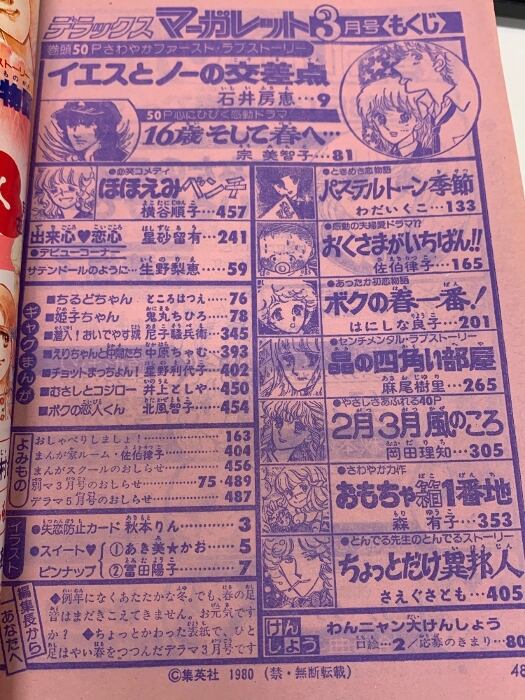 デラックスマーガレット3月号もくじ
巻頭50Pさわやかファースト・ラブストーリー
イエスとノーの交差点
石井房恵…9
50P心にひびく感動ドラマ
16歳そして春へ…
宗美智子…81
●必笑コメディ
ほほえみベンチ
横谷順子…457
出来心♥恋心 星砂留有…241
●デビューコーナー
サテンドールのように… 生野梨恵……59
ギャグまんが
■ちるどちゃん ところはつえ…76
■姫子ちゃん 鬼丸ちひろ…78
■潜入!おいでやす城 尼子騒兵衛…345
■えりちゃんと仲間たち 中原ちゃむ…393
■チョットまっちょん! 星野利代子…402
■むさしとコジロー 井上としや…450
■ボクの恋人くん 北風智子…454
よみもの
おしゃべりしましょ!…163
まんが家ルーム・佐伯律子…404
まんがスクールのおしらせ…456
別マ3月号のおしらせ…75・489
デラマ5月号のおしらせ…487
イラスト
●失恋防止カード 秋本りん…3
●スイート♥ピンナップ
①あき美★かお…5
②富田陽子…7
編集長からあなたへ
◆例年になくあたたかな冬。でも、春の足
音はまだきこえてきません。お元気です
か? ◆ちょっとかわった表紙で、ひと
足はやい春をつつんだデラマ3月号です
●ときめき恋物語
パステルトーン季節
わだいくこ…133
●感動の夫婦愛ドラマ!?
おくさまがいちばん!!
佐伯律子…165
●あったか初恋物語
ボクの春一番!
はにしな良子…201
●センチメンタル・ラブストーリー
晶の四角い部屋
麻尾樹里…265
●やさしさあふれる40P
2月3月風のころ
岡田理知…305
●さわやか力作
おもちゃ箱1番地
森 有子…353
●とんでる先生のとんでるストーリー
ちょっとだけ異邦人
さえぐさとも…405
けんしょう
わんニャン大けんしょう
口絵…2/応募のきまり…80
©集英社 1980(禁・無断転載)
48